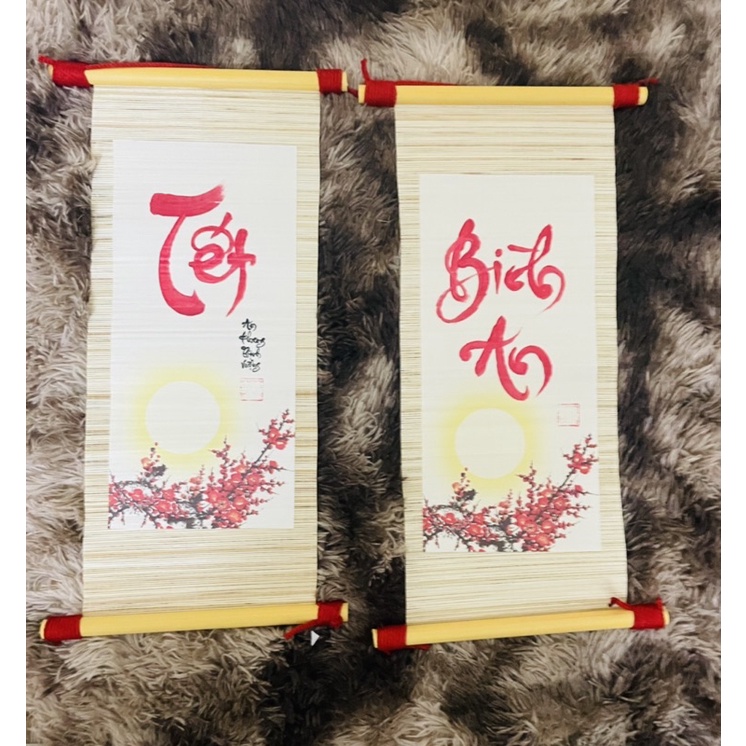 Tết
An
Khang
Thịnh
Vượng
Bình
An